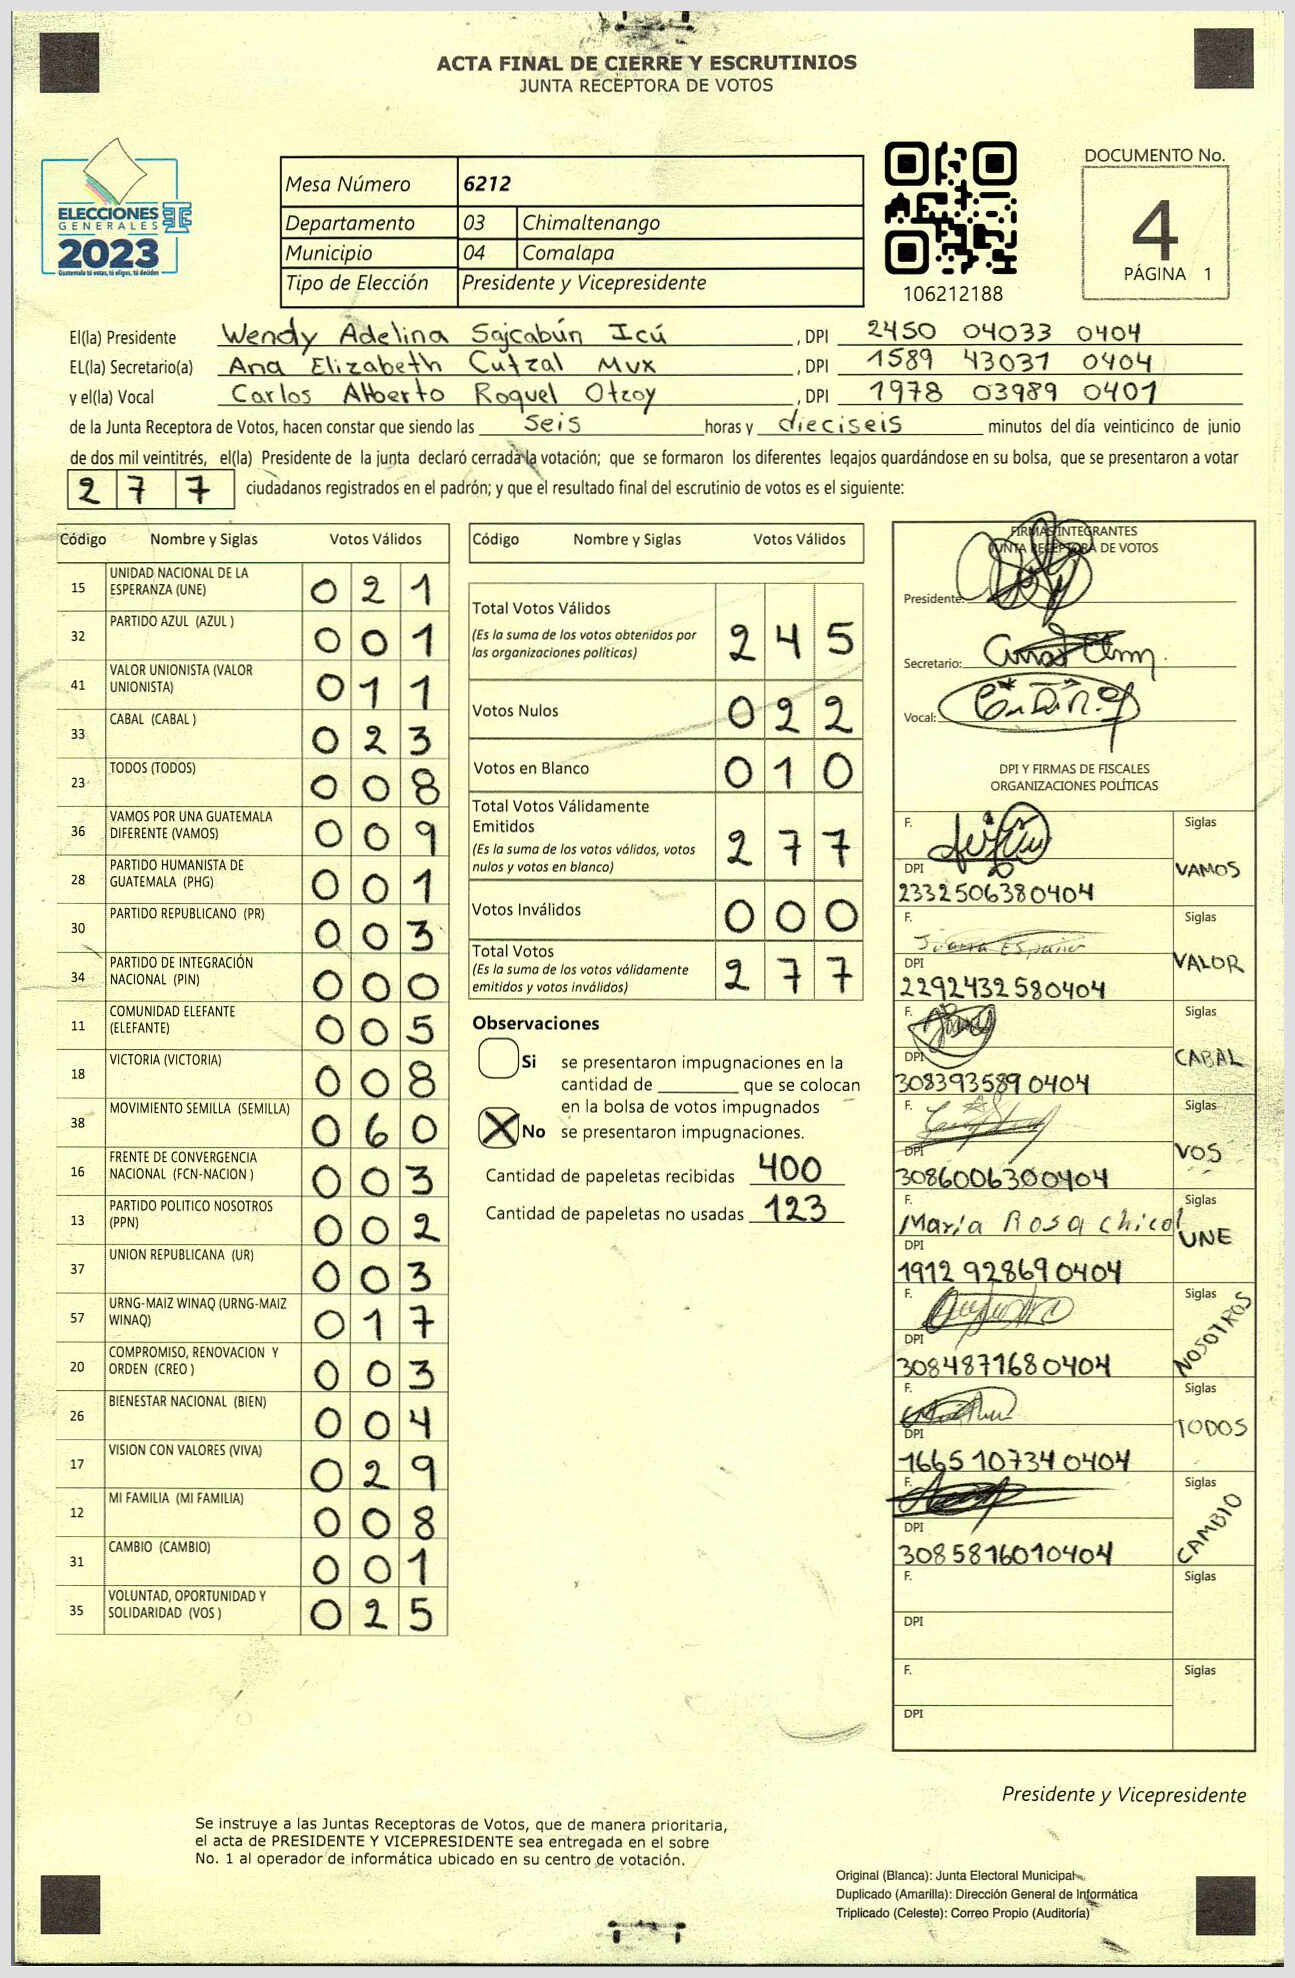 ACTA FINAL DE CIERRE Y ESCRUTINIOS
JUNTA RECEPTORA DE VOTOS
ELECCIONES
GENERALES
2023
Guatemala tú votas, tú eliges, tú decides
Mesa Número 6212
Departamento 03 Chimaltenango
Municipio 04 Comalapa
Tipo de Elección Presidente y Vicepresidente
106212188
DOCUMENTO No.
4
PÁGINA 1
El(la) Presidente Wendy Adelina Sajcabún Icú , DPI 2450 04033 0404
EL(la) Secretario(a) Ana Elizabeth Cutzal Mux , DPI 1589 43031 0404
y el(la) Vocal Carlos Alberto Roquel Otzoy , DPI 1978 03989 0401
de la Junta Receptora de Votos, hacen constar que siendo las seis horas y dieciseis minutos del día veinticinco de junio
de dos mil veintitrés, el(la) Presidente de la junta declaró cerrada la votación; que se formaron los diferentes legajos guardándose en su bolsa, que se presentaron a votar
277 ciudadanos registrados en el padrón; y que el resultado final del escrutinio de votos es el siguiente:
Código Nombre y Siglas Votos Válidos
15 UNIDAD NACIONAL DE LA ESPERANZA (UNE) 021
32 PARTIDO AZUL (AZUL ) 001
41 VALOR UNIONISTA (VALOR UNIONISTA) 011
33 CABAL (CABAL ) 023
23 TODOS (TODOS) 008
36 VAMOS POR UNA GUATEMALA DIFERENTE (VAMOS) 009
28 PARTIDO HUMANISTA DE GUATEMALA (PHG) 001
30 PARTIDO REPUBLICANO (PR) 003
34 PARTIDO DE INTEGRACIÓN NACIONAL (PIN) 000
11 COMUNIDAD ELEFANTE (ELEFANTE) 005
18 VICTORIA (VICTORIA) 008
38 MOVIMIENTO SEMILLA (SEMILLA) 060
16 FRENTE DE CONVERGENCIA NACIONAL (FCN-NACION ) 003
13 PARTIDO POLITICO NOSOTROS (PPN) 002
37 UNION REPUBLICANA (UR) 003
57 URNG-MAIZ WINAQ (URNG-MAIZ WINAQ) 017
20 COMPROMISO, RENOVACION Y ORDEN (CREO ) 003
26 BIENESTAR NACIONAL (BIEN) 004
17 VISION CON VALORES (VIVA) 029
12 MI FAMILIA (MI FAMILIA) 008
31 CAMBIO (CAMBIO) 001
35 VOLUNTAD, OPORTUNIDAD Y SOLIDARIDAD (VOS ) 025
Código Nombre y Siglas Votos Válidos
Total Votos Válidos 245
(Es la suma de los votos obtenidos por
las organizaciones politicas)
Votos Nulos 022
Votos en Blanco 010
Total Votos Válidamente
Emitidos 277
(Es la suma de los votos válidos, votos
nulos y votos en blanco)
Votos Inválidos 000
Total Votos 277
(Es la suma de los votos válidamente
emitidos y votos inválidos)
Observaciones
Si se presentaron impugnaciones en la
cantidad de ________ que se colocan
en la bolsa de votos impugnados
X No se presentaron impugnaciones.
Cantidad de papeletas recibidas 400
Cantidad de papeletas no usadas 123
FIRMAS INTEGRANTES
JUNTA RECEPTORA DE VOTOS
Presidente:
Secretario:
Vocal:
DPI Y FIRMAS DE FISCALES
ORGANIZACIONES POLÍTICAS
F. Siglas
DPI VAMOS
2332506380404
F. Siglas
DPI VALOR
2292432580404
F. Siglas
DPI CABAL
3083935890404
F. Siglas
DPI VOS
3086006300404
F. Siglas
María Rosa Chicol
DPI UNE
1912 92869 0404
F. Siglas
DPI NOSOTROS
3084871680404
F. Siglas
DPI TODOS
1665 10734 0404
F. Siglas
DPI CAMBIO
3085816010404
F. Siglas
DPI
F. Siglas
DPI
Presidente y Vicepresidente
Se instruye a las Juntas Receptoras de Votos, que de manera prioritaria,
el acta de PRESIDENTE Y VICEPRESIDENTE sea entregada en el sobre
No. 1 al operador de informática ubicado en su centro de votación.
Original (Blanca): Junta Electoral Municipal
Duplicado (Amarilla): Dirección General de Informática
Triplicado (Celeste): Correo Propio (Auditoría)